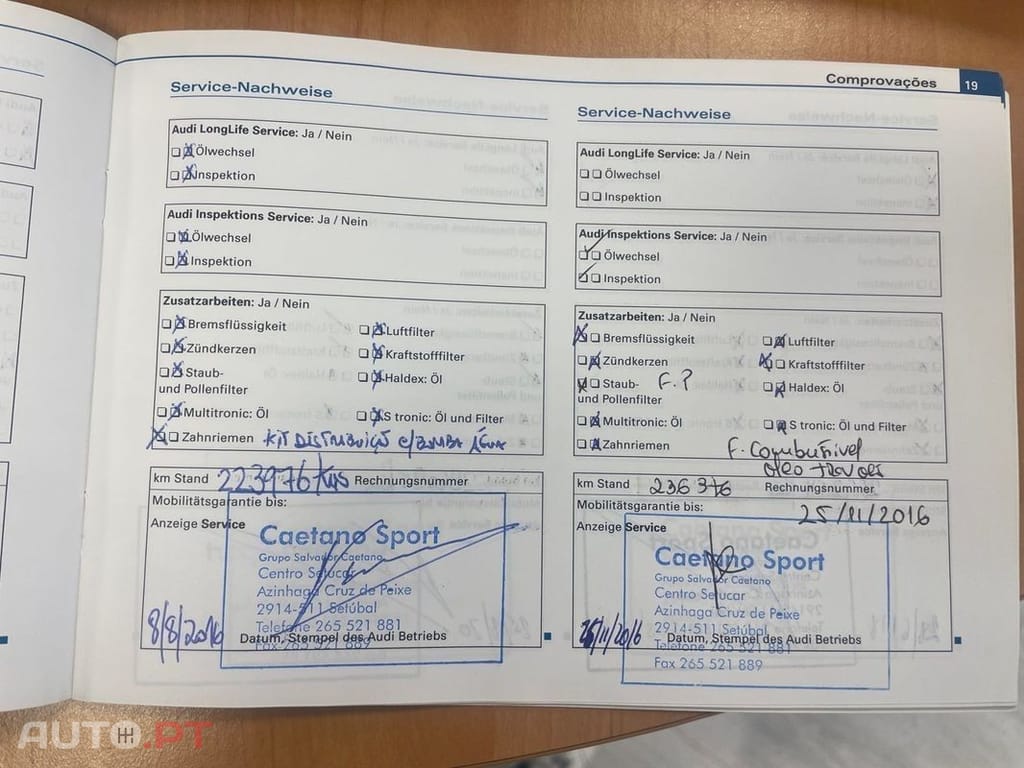 Comprovações 19
Service-Nachweise
Audi LongLife Service: Ja / Nein
Ölwechsel
Inspektion
Audi Inspektions Service: Ja / Nein
Ölwechsel
Inspektion
Zusatzarbeiten: Ja / Nein
Bremsflüssigkeit Luftfilter
Zündkerzen Kraftstofffilter
Staub- Haldex: Öl
und Pollenfilter
Multitronic: Öl S tronic: Öl und Filter
Zahnriemen KIT DISTRIBUIÇÃO c/ BOMBA ÁGUA
km Stand 223976 Kms Rechnungsnummer
Mobilitätsgarantie bis:
Anzeige Service
Caetano Sport
Grupo Salvador Caetano
Centro Selucar
Azinhaga Cruz de Peixe
2914-511 Setúbal
Telefone 265 521 881
Fax 265 521 889
8/8/2016
Datum, Stempel des Audi Betriebs
Service-Nachweise
Audi LongLife Service: Ja / Nein
Ölwechsel
Inspektion
Audi Inspektions Service: Ja / Nein
Ölwechsel
Inspektion
Zusatzarbeiten: Ja / Nein
Bremsflüssigkeit Luftfilter
Zündkerzen Kraftstofffilter
Staub- F.P Haldex: Öl
und Pollenfilter
Multitronic: Öl S tronic: Öl und Filter
Zahnriemen F. Combustivel
oleo travões
km Stand 236376 Rechnungsnummer
Mobilitätsgarantie bis: 25/11/2016
Anzeige Service
Caetano Sport
Grupo Salvador Caetano
Centro Selucar
Azinhaga Cruz de Peixe
2914-511 Setúbal
Telefone 265 521 881
Fax 265 521 889
25/11/2016
Datum, Stempel des Audi Betriebs
AUTO.PT